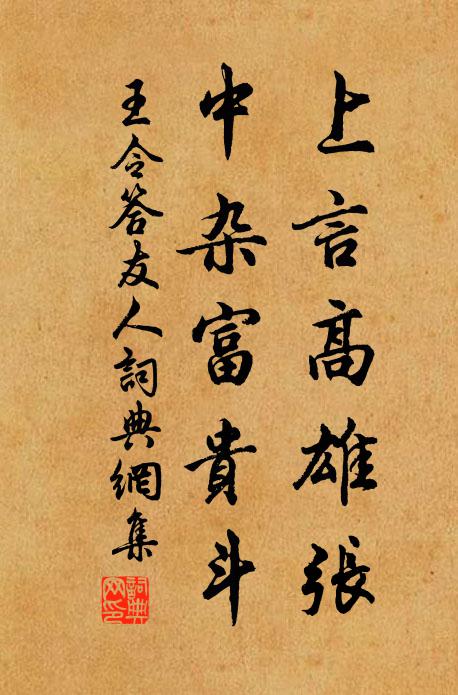 上言高雄張
中杂富貴斗
王令答友人詞典網集
詞典
网印